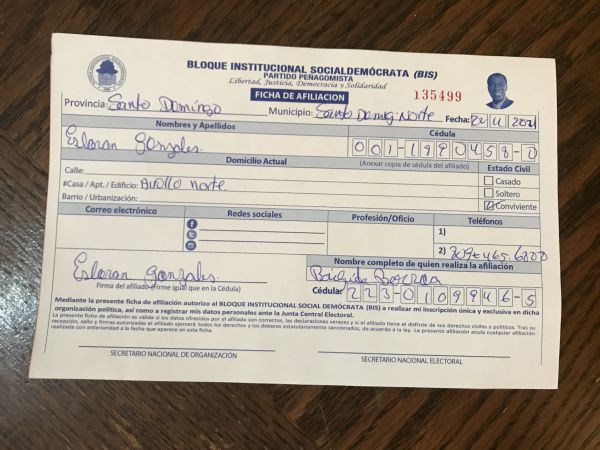 BLOQUE INSTITUCIONAL SOCIALDEMÓCRATA (BIS)
PARTIDO PEÑAGOMISTA
Libertad, Justicia, Democracia y Solidaridad
FICHA DE AFILIACION
135499
Provincia: Santo Domingo Municipio: Santo Doming Norte Fecha: 22/11/2021
Nombres y Apellidos
Cédula
Esloran Gonzales.
001-1980458-0
Domicilio Actual
(Anexar copia de cédula del afiliado)
Estado Civil
Calle:
Casado
#Casa / Apt. / Edificio: norte
Soltero
Barrio / Urbanización:
Conviviente
Correo electrónico
Redes sociales
Profesión/Oficio
Teléfonos
1)
2) 809-465.6000
Nombre completo de quien realiza la afiliación
Esloran gonzales.
Firma del afiliado (Firme igual que en la Cédula)
Cédula: 223-0109946-5
Mediante la presente ficha de afiliación autorizo al BLOQUE INSTITUCIONAL SOCIAL DEMÓCRATA (BIS) a realizar mi inscripción única y exclusiva en dicha
organización política, así como a registrar mis datos personales ante la Junta Central Electoral.
La presente ficha de afiliación es válida si los datos ofrecidos por el afiliado son correctos, las declaraciones veraces y si el afiliado tiene el disfrute de sus derechos civiles y políticos. Tras su
recepción, sello y firmas autorizadas el afiliado ejercerá todos los derechos y los deberes estatutariamente sancionados, de acuerdo a la ley. La presente afiliación anula cualquier afiliación
realizada con anterioridad a la fecha que aparece en esta ficha.
SECRETARIO NACIONAL DE ORGANIZACIÓN
SECRETARIO NACIONAL ELECTORAL